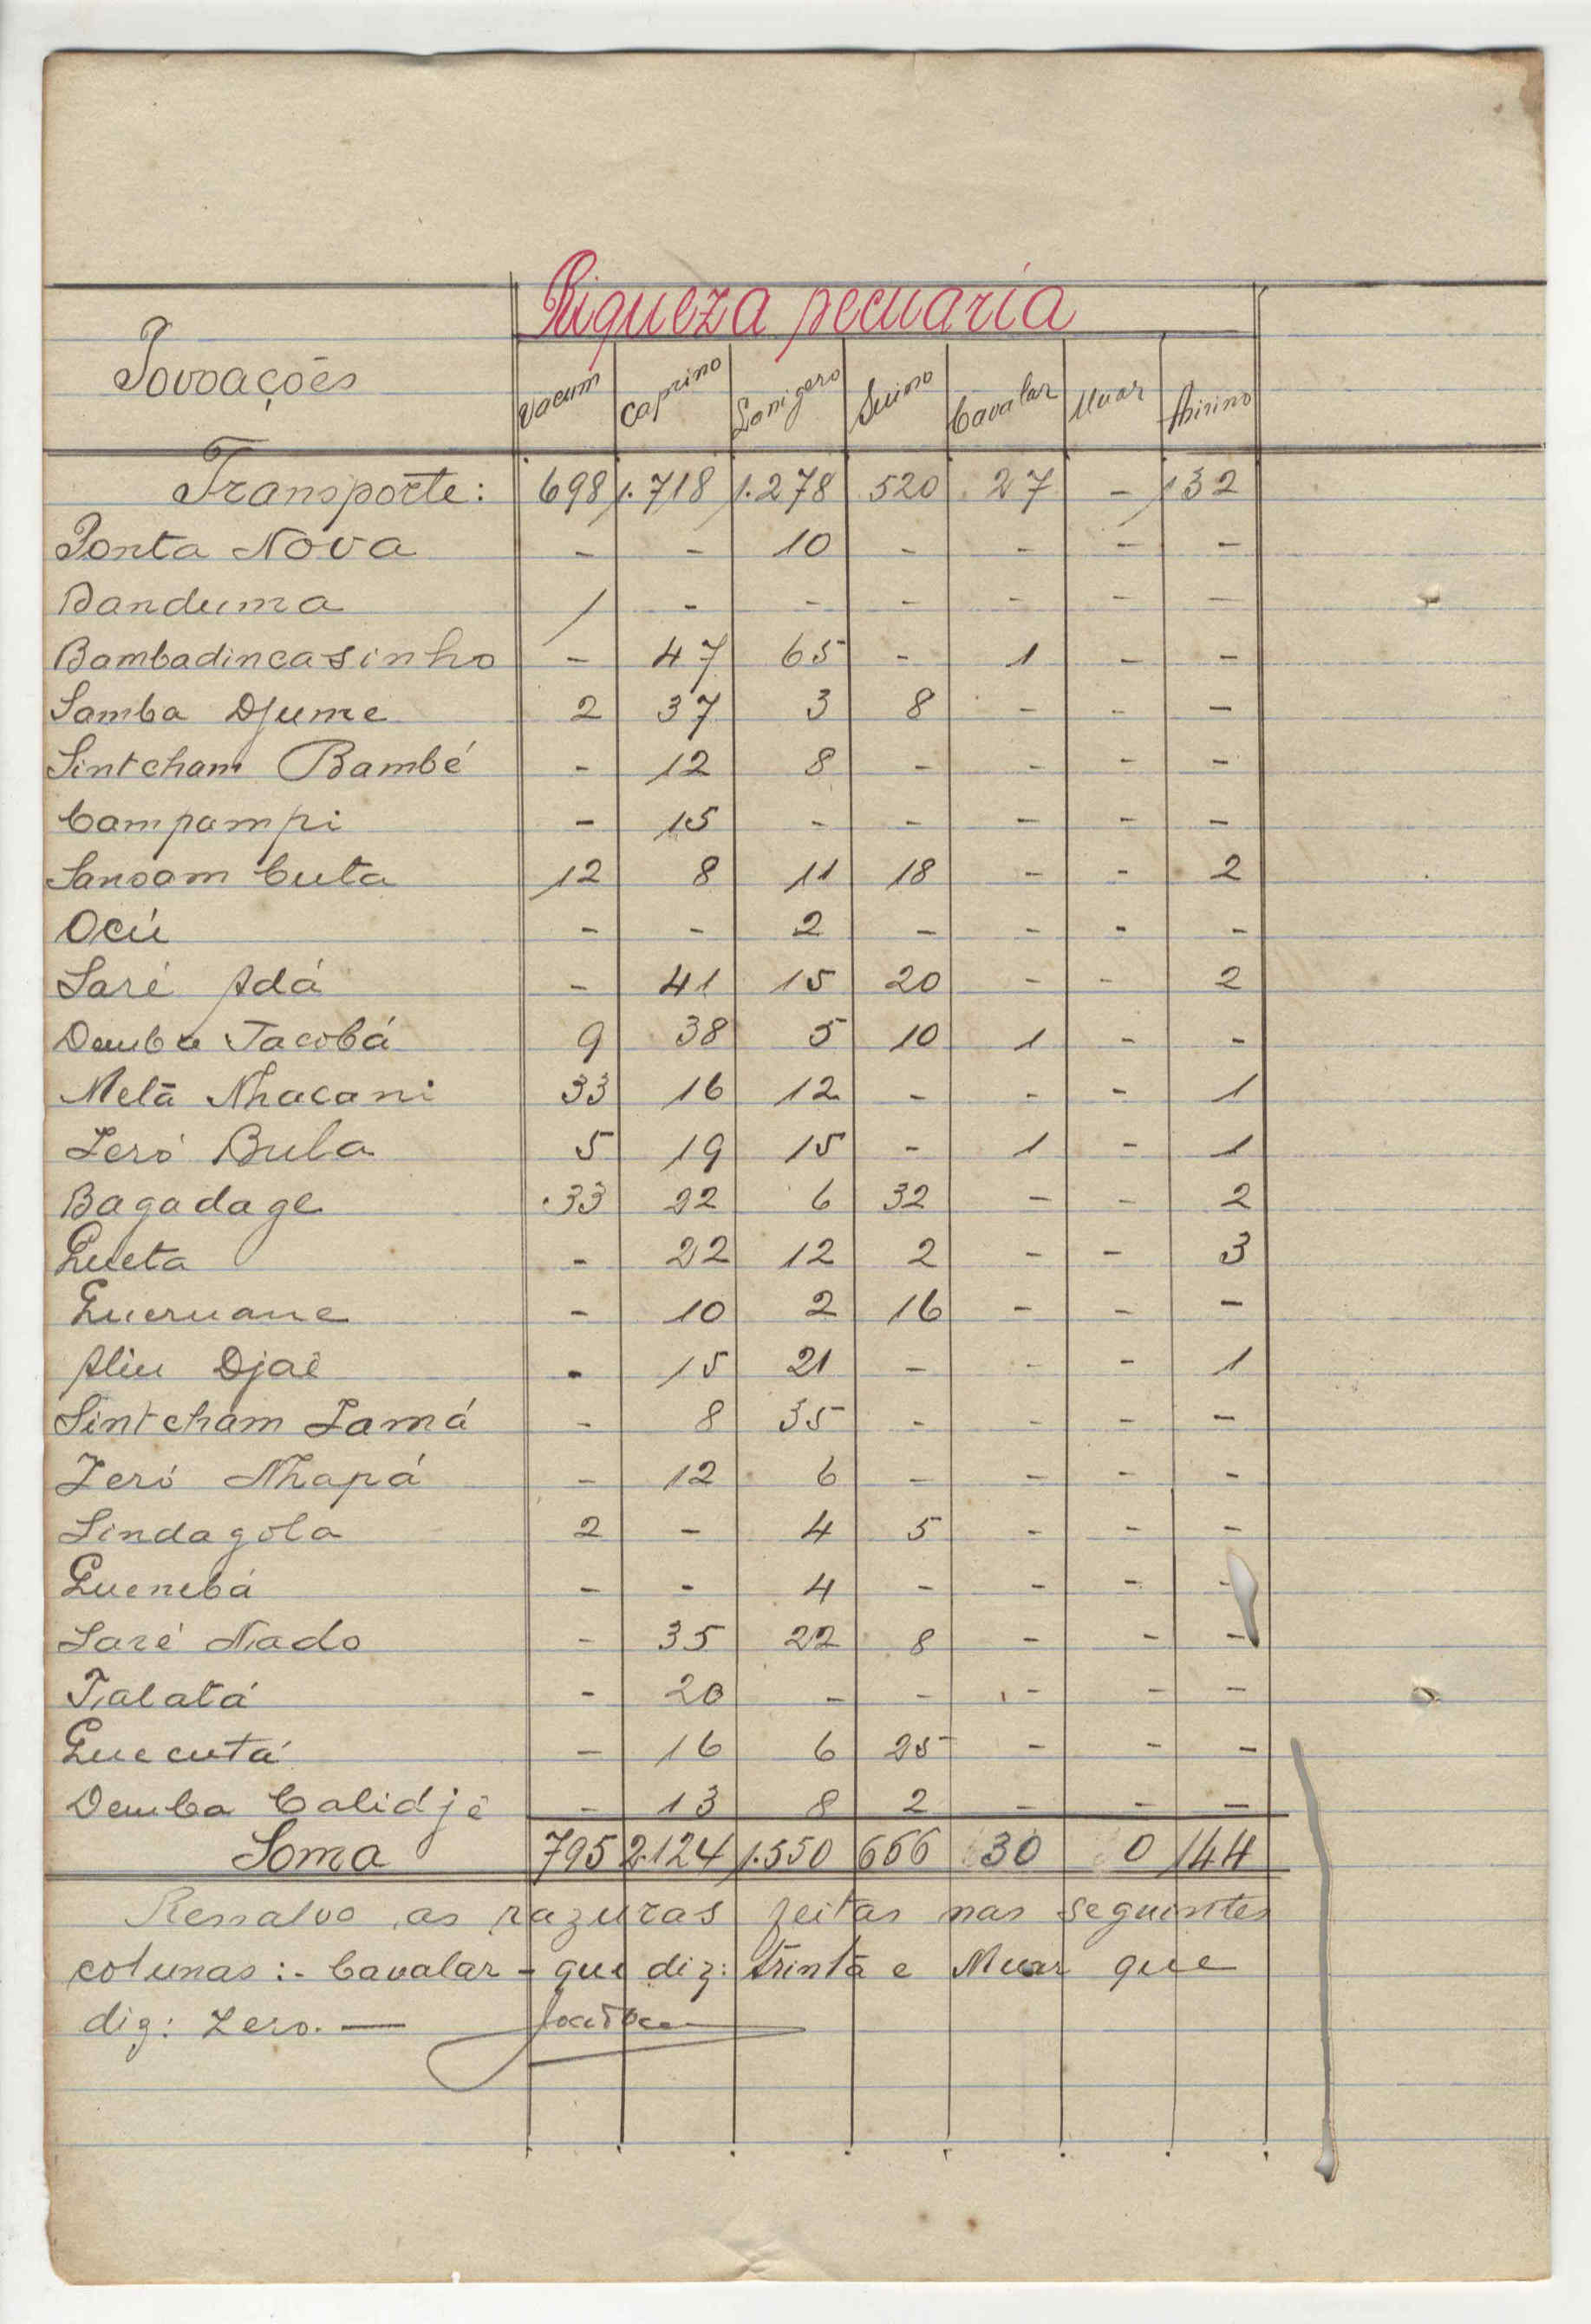 Riqueza pecuaria
Povoações Vacum Caprino Lanigero Suino Cavalar Muar Asinino
Transporte: 698 1.718 1.278 520 27 - 132
Ponta Nova - - 10 - - - -
Banduma 1 - - - - - -
Bambadincasinho - 47 65 - 1 - -
Samba Djume 2 37 3 8 - - -
Sintcham Bambé - 12 8 - - - -
Campampi - 15 - - - - -
Sansam Cuta 12 8 11 18 - - 2
Ocú - - 2 - - - -
Saré Adá - 41 15 20 - - 2
Demba Jacobá 9 38 5 10 1 - -
Melã Nhacani 33 16 12 - - - 1
Jeró Bula 5 19 15 - 1 - 1
Bagadage 33 22 6 32 - - 2
Queta - 22 12 2 - - 3
Queruane - 10 2 16 - - -
Aliu Djaé - 15 21 - - - 1
Sintcham Lamá - 8 35 - - - -
Jeró Nhapá - 12 6 - - - -
Sindagola 2 - 4 5 - - -
Quenebá - - 4 - - - -
Saré Nado - 35 22 8 - - -
Talatá - 20 - - - - -
Quecutá - 16 6 25 - - -
Demba Calidjê - 13 8 2 - - -
Soma 795 2.124 1.550 666 30 0 144
Ressalvo as razuras feitas nas seguintes
colunas:- Cavalar - que diz: trinta e Muar que
diz: Zero. —